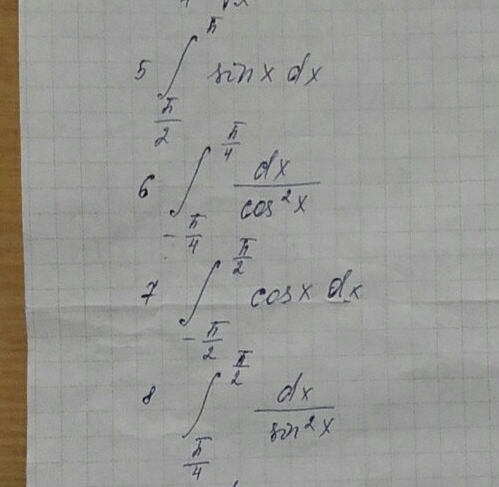 5 ∫_{π/2}^{π} sin x dx
6 ∫_{-π/4}^{π/4} dx/cos²x
7 ∫_{-π/2}^{π/2} cos x dx
8 ∫_{π/4}^{π/2} dx/sin²x